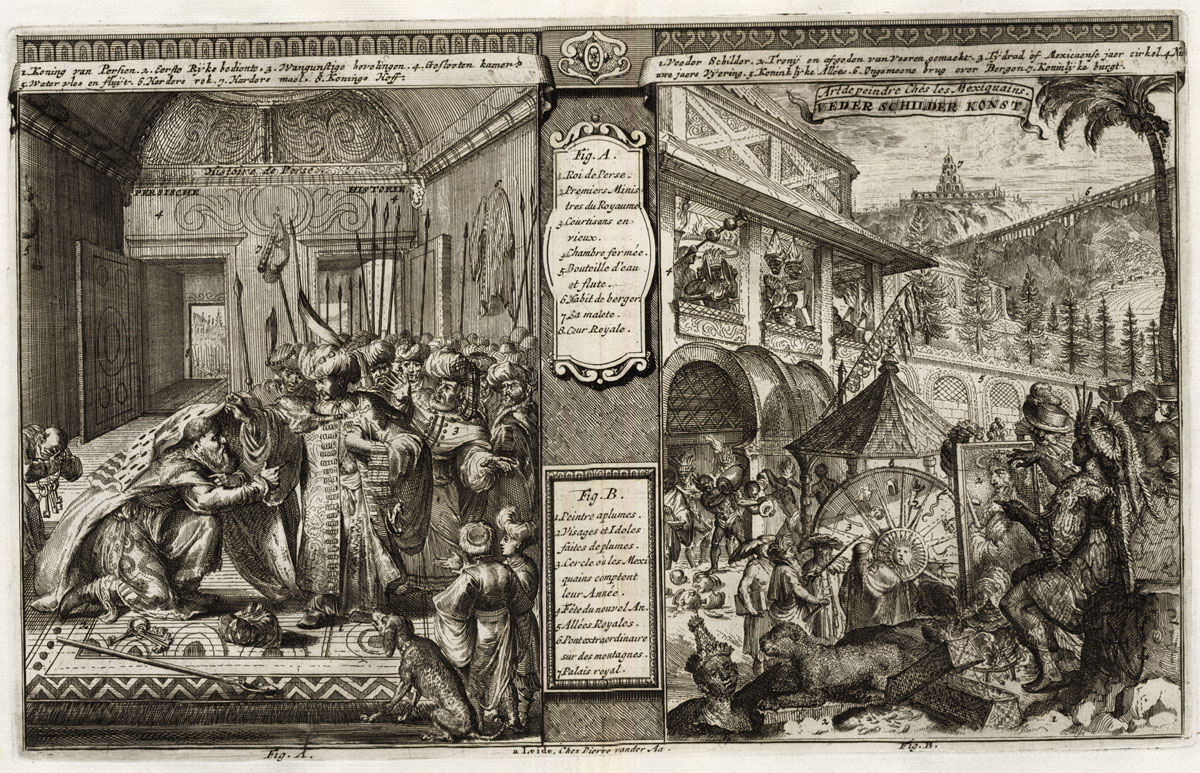 1. Koning van Persien. 2. Eerste Ryks bediente. 3. Wangunstige hovelingen. 4. Geslooten kamer.
5. Water vles en fluyt. 6. Harders rok. 7. Harders mael. 8. Konings Hoff.
1. Veeder Schilder. 2. Trony en afgoden van Veeren gemaekt. 3. Tydrad of Mexicaense jaer cirkel. 4. Nieuwe
jaers Vyering. 5. Koninklyke Allées. 6. Ongemeene brug over Bergen. 7. Koninlyke burgt.
Histoire de Perse
PERSISCHE HISTORIE
Art de peindre Chés les Mexiquains.
VEDER SCHILDER KONST
Fig. A.
1. Roi de Perse.
2. Premiers Minis-
tres du Royaume
3. Courtisans en-
vieux.
4. Chambre fermée.
5. Bouteille d'eau
et flute.
6. Habit de berger.
7. La malete.
8. Cour Royale.
Fig. B.
1. Peintre a plumes.
2. Visages et Idoles
faites de plumes.
3. Cercle ou les Mexi
quains comptent
leur Année.
4. Fête du nouvel An.
5. Allées Royales.
6. Pont extraordinaire
sur des montagnes.
7. Palais royal.
Fig. A.
a Leide, Chez Pierre vander Aa.
Fig. B.